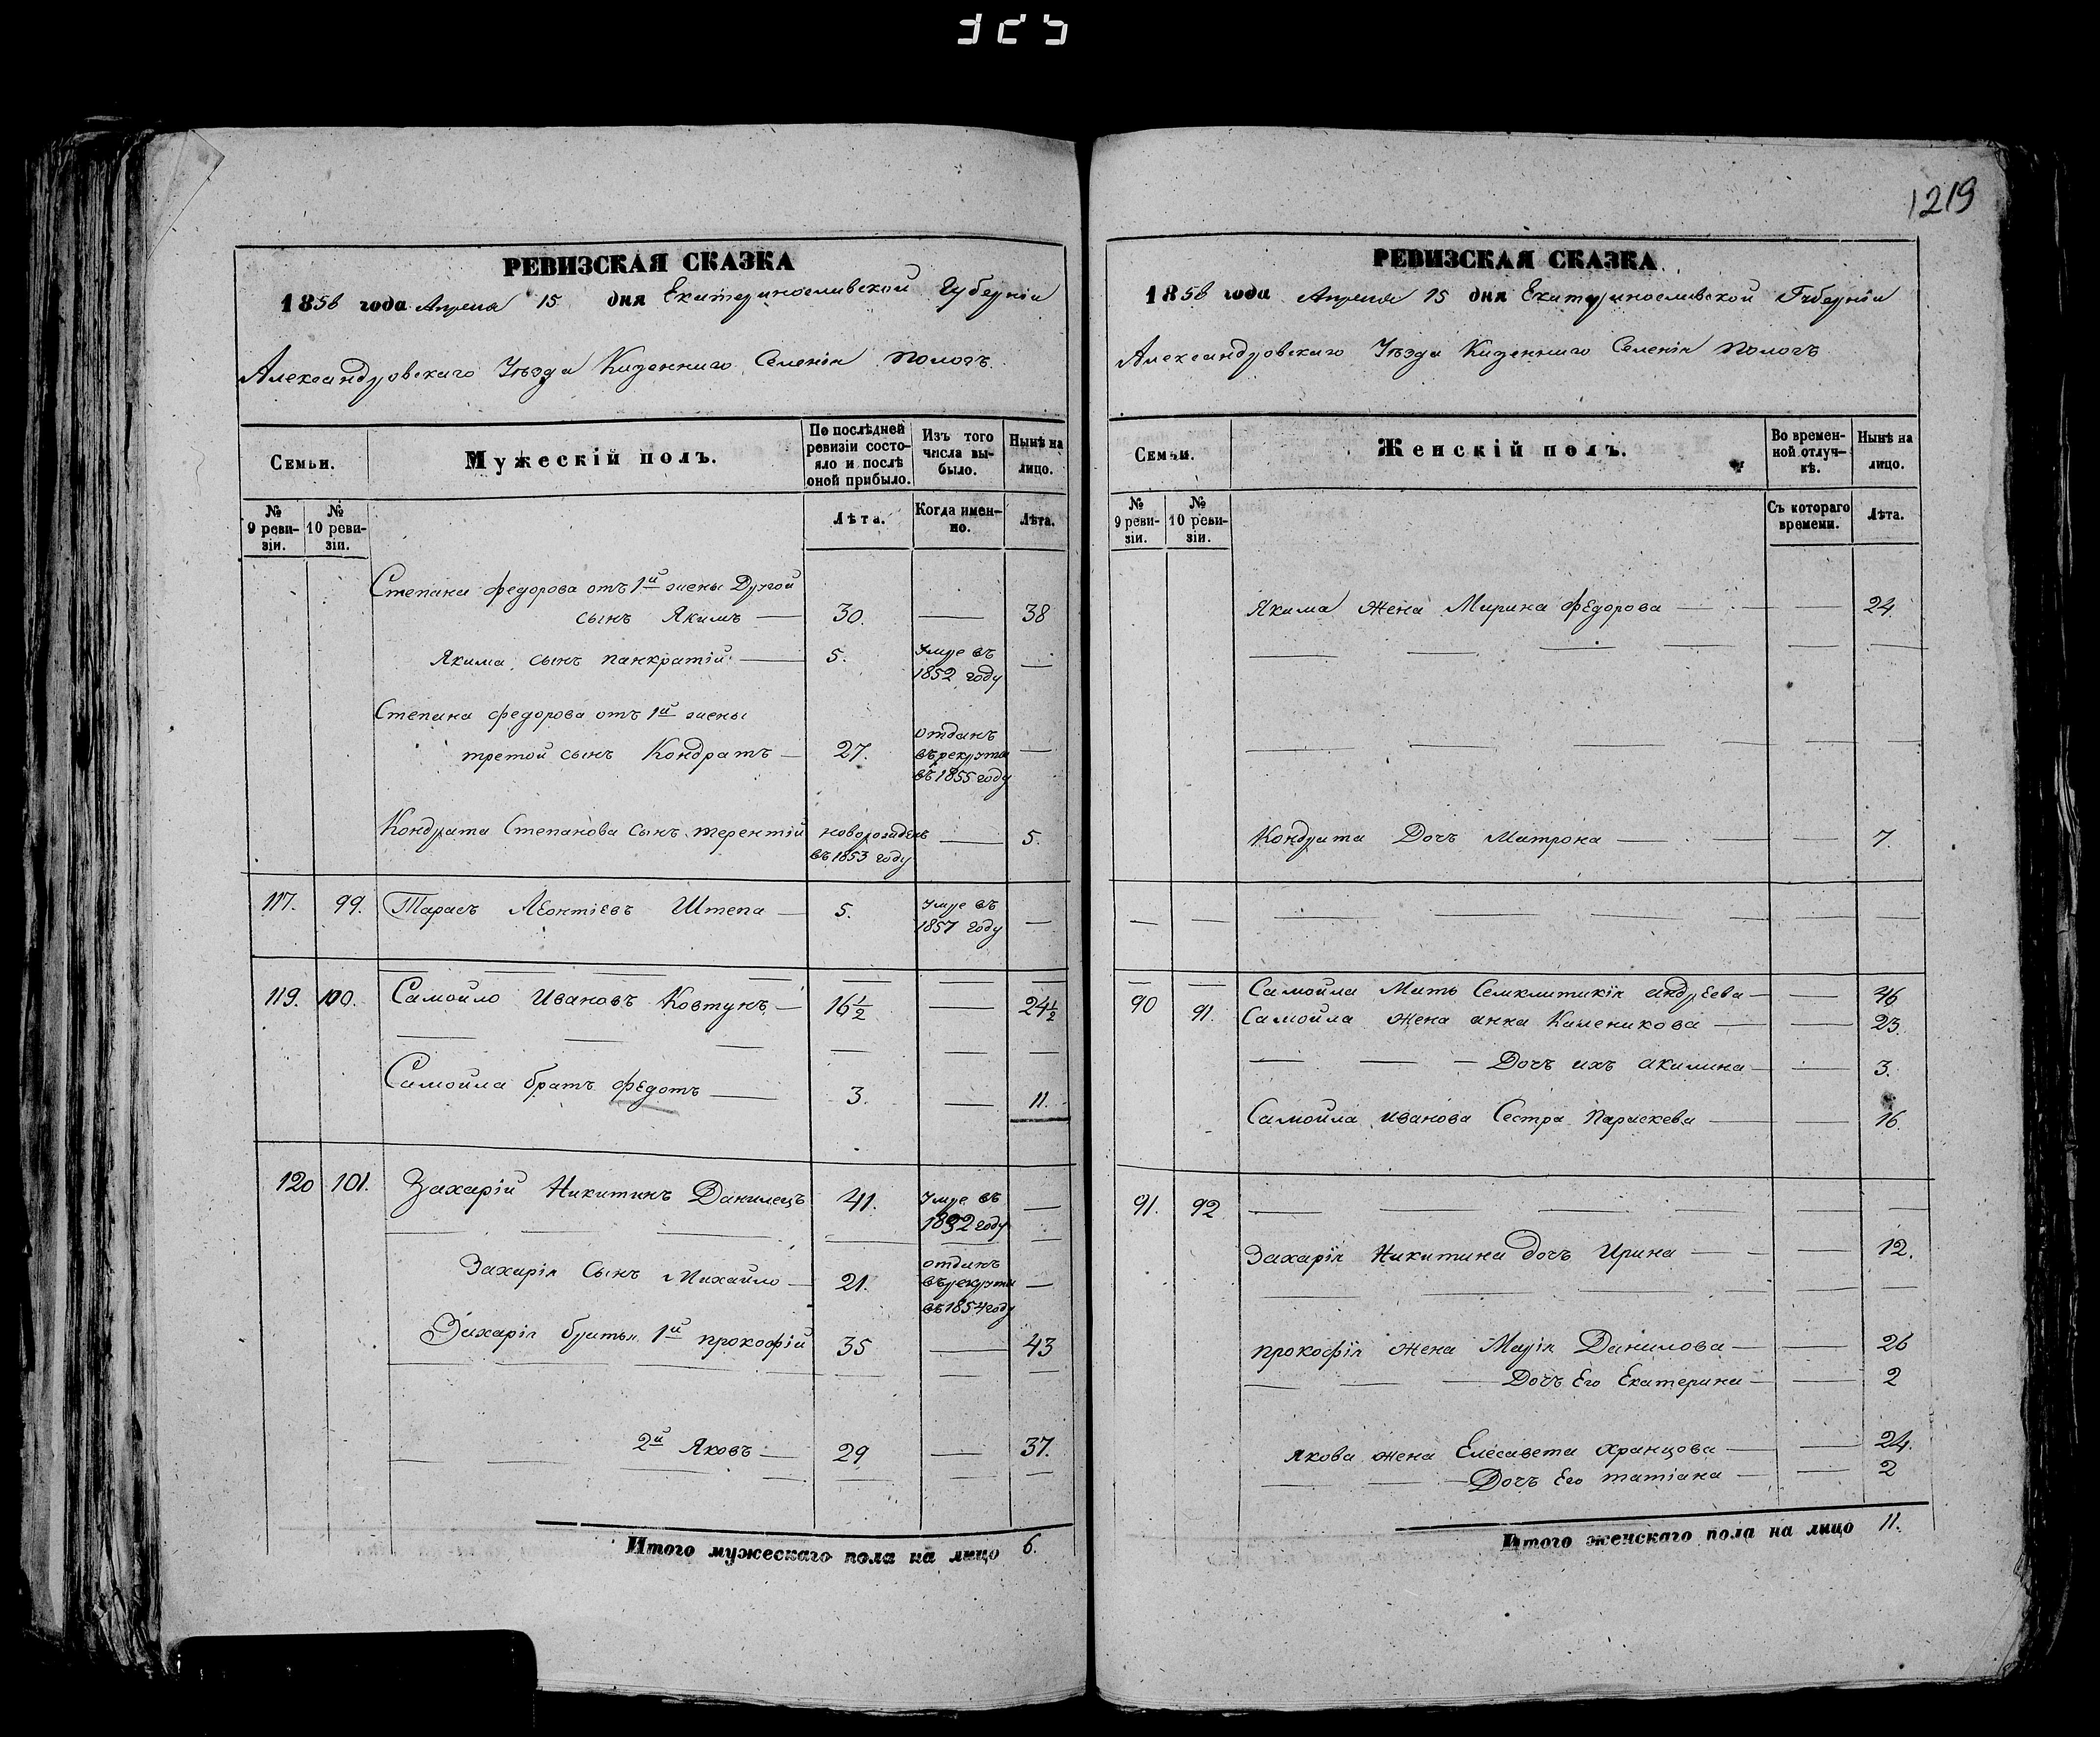 1219
РЕВИЗСКАЯ СКАЗКА
1858 года Апреля 15 дня Екатеринославской Губерніи
Александровскаго Уѣзда Казеннаго Селенія Пологъ
Семьи.
Мужескій полъ.
По послѣдней ревизіи состояло и послѣ оной прибыло.
Изъ того числа выбыло.
Нынѣ на лицо.
№ 9 ревизіи.
№ 10 ревизіи.
Лѣта.
Когда именно.
Лѣта.
Степана федорова отъ 1й жены Другой
сынъ Якимъ — 30. — 38
Якима сынъ панкратій — 5. Умре въ 1852 году —
Степана федорова отъ 1й жены
третой сынъ Кондратъ — 27. отданъ въ рекруты въ 1855 году —
Кондрата Степанова сынъ терентій новорожденъ въ 1853 году — 5.
117. 99. Тарасъ Леонтіевъ Штепа — 5. умре въ 1857 году —
119. 100. Самойло Ивановъ Ковтунъ — 16 1/2 — 24 1/2
Самойла братъ федотъ — 3. — 11.
120 101. Захарій Никитинъ Данилецъ 41. Умре въ 1852 году —
Захарія Сынъ Михайло — 21. отданъ въ рекруты въ 1854 году —
Захарія братья 1й прокофій 35 — 43
2й Яковъ — 29 — 37.
Итого мужескаго пола на лицо 6.
РЕВИЗСКАЯ СКАЗКА
1858 года Апреля 15 дня Екатеринославской Губерніи
Александровскаго Уѣзда Казеннаго Селенія Пологъ
Семьи.
Женскій полъ.
Во временной отлучкѣ.
Нынѣ на лицо.
№ 9 ревизіи.
№ 10 ревизіи.
Съ котораго времени.
Лѣта.
Якима Жена Марина федорова — — 24
Кондрата Дочъ Матрона — — 7.
Самойла Мать андреева — — 46
90 91. Самойла Жена анна — — 23.
— Дочъ ихъ акилина — — 3.
Самойла иванова Сестра Параскева — — 16.
91. 92
Захарія Никитина дочъ Ирина — — 12.
прокофія жена Марія Данилова — — 26
— Дочъ Его Екатерина — — 2
Якова жена Елесавета — — 24.
— Дочъ Его татіана — — 2
Итого женскаго пола на лицо 11.